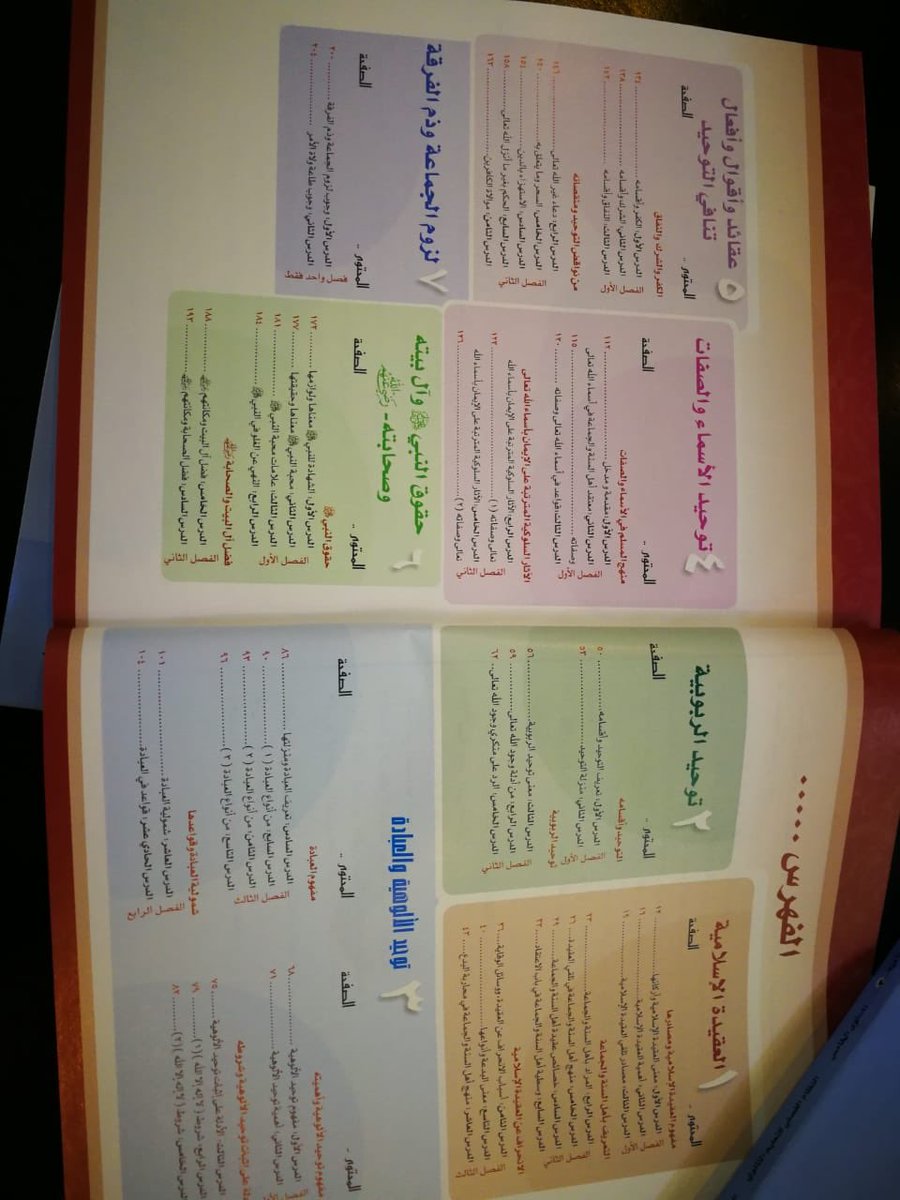 الفهرس .....
١ العقيدة الإسلامية
المحتوى .. الصفحة
مفهوم العقيدة الإسلامية ومصادرها
الفصل الأول
الدرس الأول: معنى العقيدة الإسلامية وأركانها ........ ١٢
الدرس الثاني: أهمية العقيدة الإسلامية ........ ١٦
الدرس الثالث: مصادر تلقي العقيدة الإسلامية ........ ١٩
التعريف بأهل السنة والجماعة
الفصل الثاني
الدرس الرابع: المراد بأهل السنة والجماعة ........ ٢٣
الدرس الخامس: منهج أهل السنة والجماعة في تلقي العقيدة .... ٢٦
الدرس السادس: خصائص عقيدة أهل السنة والجماعة ........ ٢٩
الدرس السابع: وسطية أهل السنة والجماعة في باب الاعتقاد .... ٣٣
الانحراف عن العقيدة الإسلامية
الفصل الثالث
الدرس الثامن: أسباب الانحراف عن العقيدة، ووسائل الوقاية .... ٣٦
الدرس التاسع: معنى البدعة وأنواعها ........ ٤٠
الدرس العاشر: منهج أهل السنة والجماعة في محاربة البدع .... ٤٣
٢ توحيد الربوبية
المحتوى .. الصفحة
التوحيد وأقسامه
الفصل الأول
الدرس الأول: تعريف التوحيد وأقسامه ........ ٥٠
الدرس الثاني: منزلة التوحيد ........ ٥٣
توحيد الربوبية
الفصل الثاني
الدرس الثالث: معنى توحيد الربوبية ........ ٥٦
الدرس الرابع: من أدلة وجود الله تعالى ........ ٥٩
الدرس الخامس: الرد على منكري وجود الله تعالى .... ٦٢
٣ توحيد الألوهية والعبادة
الصفحة
مفهوم توحيد الألوهية وأهميته
الدرس الأول: مفهوم توحيد الألوهية ........ ٦٨
الدرس الثاني: أهمية توحيد الألوهية ........ ٧١
على إثبات توحيد الألوهية وشروطه
الدرس الثالث: الأدلة على إثبات توحيد الألوهية .... ٧٥
الدرس الرابع: شروط ( لا إله إلا الله ) (١) .... ٧٩
الدرس الخامس: شروط ( لا إله إلا الله ) (٢) .... ٨٢
المحتوى .. الصفحة
مفهوم العبادة
الفصل الثالث
الدرس السادس: تعريف العبادة ومنزلتها ........ ٨٦
الدرس السابع: من أنواع العبادة ( ١ ) ........ ٩٠
الدرس الثامن: من أنواع العبادة ( ٢ ) ........ ٩٣
الدرس التاسع: من أنواع العبادة ( ٣ ) ........ ٩٦
شمولية العبادة وقواعدها
الفصل الرابع
الدرس العاشر: شمولية العبادة ........ ١٠١
الدرس الحادي عشر: قواعد في العبادة ........ ١٠٤
٤ توحيد الأسماء والصفات
المحتوى .. الصفحة
منهج المسلم في الأسماء والصفات
الفصل الأول
الدرس الأول: مقدمة ومدخل ........ ١١٢
الدرس الثاني: معتقد أهل السنة والجماعة في أسماء الله تعالى
وصفاته ........ ١١٥
الدرس الثالث: قواعد في أسماء الله تعالى وصفاته ........ ١٢٠
الآثار السلوكية المترتبة على الإيمان بأسماء الله تعالى
الفصل الثاني
الدرس الرابع: الآثار السلوكية المترتبة على الإيمان بأسماء الله
تعالى وصفاته (١) ........ ١٢٣
الدرس الخامس: الآثار السلوكية المترتبة على الإيمان بأسماء الله
تعالى وصفاته (٢) ........ ١٢٦
٥ عقائد وأقوال وأفعال
تنافي التوحيد
المحتوى .. الصفحة
الكفر والشرك والنفاق
الفصل الأول
الدرس الأول: الكفر وأقسامه ........ ١٣٤
الدرس الثاني: الشرك وأقسامه ........ ١٣٨
الدرس الثالث: النفاق وأقسامه ........ ١٤٣
من نواقض التوحيد ومنقصاته
الفصل الثاني
الدرس الرابع: دعاء غير الله تعالى ........ ١٤٦
الدرس الخامس: السحر وما يتعلق به ........
الدرس السادس: الاستهزاء بالدين ........ ١٥٤
الدرس السابع: الحكم بغير ما أنزل الله تعالى ........ ١٥٨
الدرس الثامن: موالاة الكافرين ........ ١٦٢
٦ حقوق النبي ﷺ وآل بيته
وصحابته - رضي الله عنهم
المحتوى .. الصفحة
حقوق النبي ﷺ
الفصل الأول
الدرس الأول: الشهادة للنبي ﷺ معناها ولوازمها ........ ١٧٣
الدرس الثاني: محبة النبي ﷺ معناها وحقيقتها ........ ١٧٧
الدرس الثالث: علامات محبة النبي ﷺ ........ ١٨١
الدرس الرابع: النهي عن الغلو في النبي ﷺ ........ ١٨٤
فضل آل البيت والصحابة
الفصل الثاني
الدرس الخامس: فضل آل البيت ومكانتهم ........ ١٨٨
الدرس السادس: فضل الصحابة ومكانتهم ........ ١٩٣
٧ لزوم الجماعة وذم الفرقة
المحتوى .. الصفحة
فصل واحد فقط
الدرس الأول: وجوب لزوم الجماعة وذم الفرقة ........ ٢٠٠
الدرس الثاني: وجوب طاعة ولاة الأمر ........ ٢٠٤